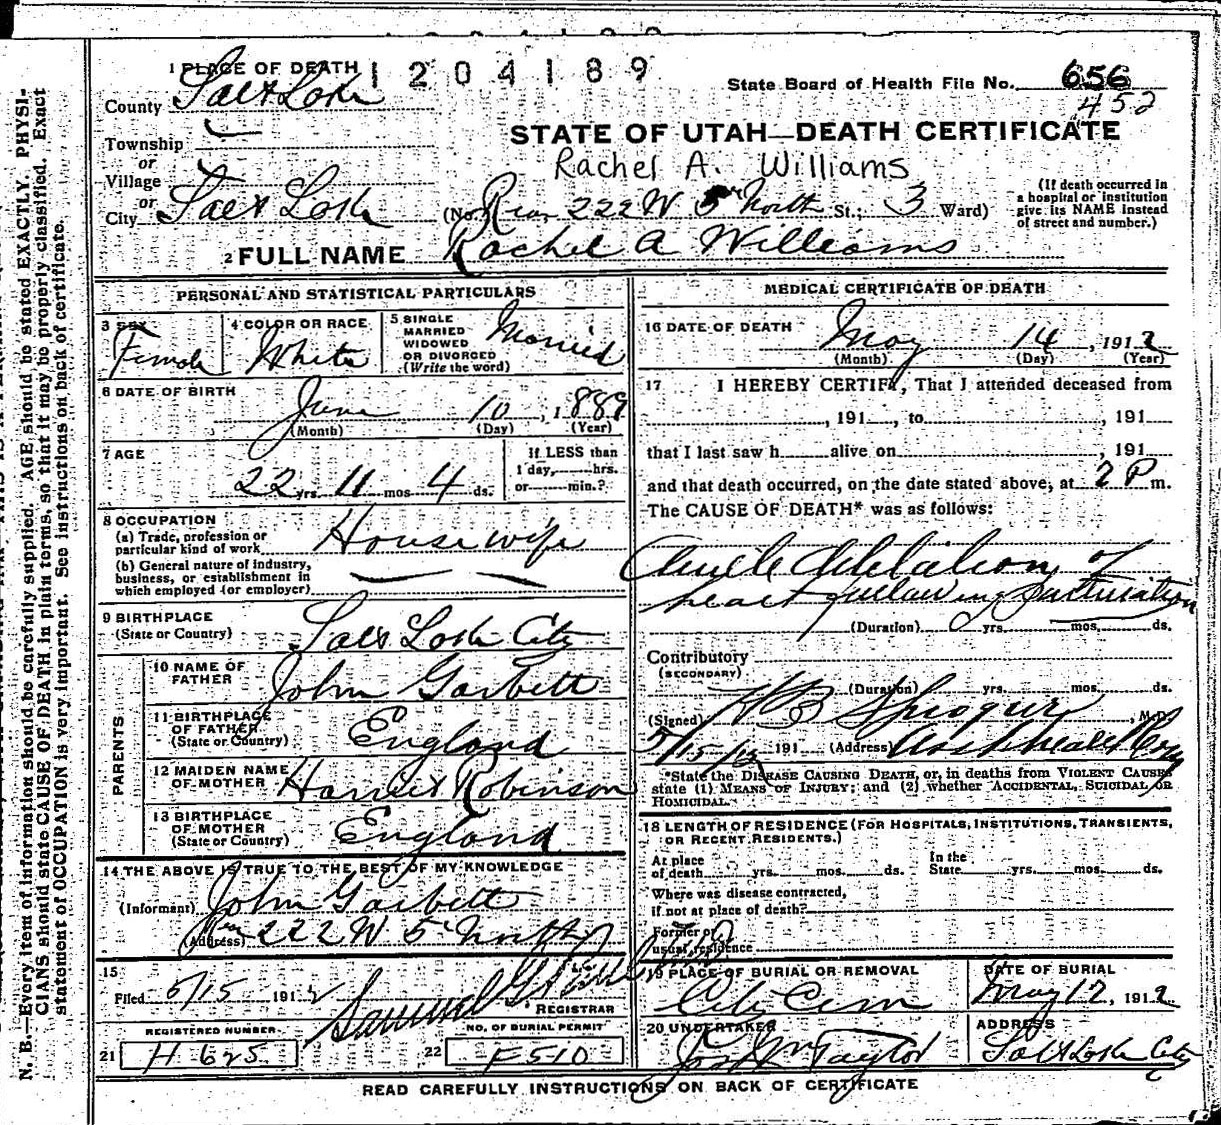 1204189
1 PLACE OF DEATH
State Board of Health File No. 656
452
County Salt Lake
STATE OF UTAH—DEATH CERTIFICATE
Township
or
Village
Rachel A. Williams
or
City Salt Lake (No. Rear 222 W 5 North St.; 3 Ward)
(If death occurred in a hospital or institution give its NAME instead of street and number.)
2 FULL NAME Rachel A Williams
PERSONAL AND STATISTICAL PARTICULARS
3 SEX Female
4 COLOR OR RACE White
5 SINGLE MARRIED WIDOWED OR DIVORCED (Write the word) Married
6 DATE OF BIRTH June 10, 1889
(Month) (Day) (Year)
7 AGE 22 yrs. 11 mos. 4 ds.
If LESS than 1 day, hrs. or min.?
8 OCCUPATION
(a) Trade, profession or particular kind of work Housewife
(b) General nature of industry, business, or establishment in which employed (or employer)
9 BIRTHPLACE (State or Country) Salt Lake City
PARENTS
10 NAME OF FATHER John Garbett
11 BIRTHPLACE OF FATHER (State or Country) England
12 MAIDEN NAME OF MOTHER Harriet Robinson
13 BIRTHPLACE OF MOTHER (State or Country) England
14 THE ABOVE IS TRUE TO THE BEST OF MY KNOWLEDGE
(Informant) John Garbett
(Address) Rear 222 W 5 North
15
Filed 5/15 1912 Samuel G.
REGISTRAR
REGISTERED NUMBER
21 H 625
NO. OF BURIAL PERMIT
22 F510
MEDICAL CERTIFICATE OF DEATH
16 DATE OF DEATH May 14, 1912
(Month) (Day) (Year)
17 I HEREBY CERTIFY, That I attended deceased from
, 191 , to , 191
that I last saw h alive on , 191
and that death occurred, on the date stated above, at 2 P m.
The CAUSE OF DEATH* was as follows:
Acute dilatation of
heart following parturition
(Duration) yrs. mos. ds.
Contributory
(SECONDARY)
(Duration) yrs. mos. ds.
(Signed) H B Sprague, M.D.
5/15/12 191 (Address)
*State the DISEASE CAUSING DEATH, or, in deaths from VIOLENT CAUSES
state (1) MEANS OF INJURY; and (2) whether ACCIDENTAL, SUICIDAL OR
HOMICIDAL.
18 LENGTH OF RESIDENCE (FOR HOSPITALS, INSTITUTIONS, TRANSIENTS,
OR RECENT RESIDENTS.)
At place of death yrs. mos. ds. In the State yrs. mos. ds.
Where was disease contracted,
if not at place of death?
Former or
usual residence
19 PLACE OF BURIAL OR REMOVAL City Cem
DATE OF BURIAL May 17, 1912
20 UNDERTAKER Jos Wm Taylor
ADDRESS Salt Lake City
READ CAREFULLY INSTRUCTIONS ON BACK OF CERTIFICATE
N. B.—Every item of information should be carefully supplied. AGE should be stated EXACTLY. PHYSI-
CIANS should state CAUSE OF DEATH in plain terms, so that it may be properly classified. Exact
statement of OCCUPATION is very important. See instructions on back of certificate.